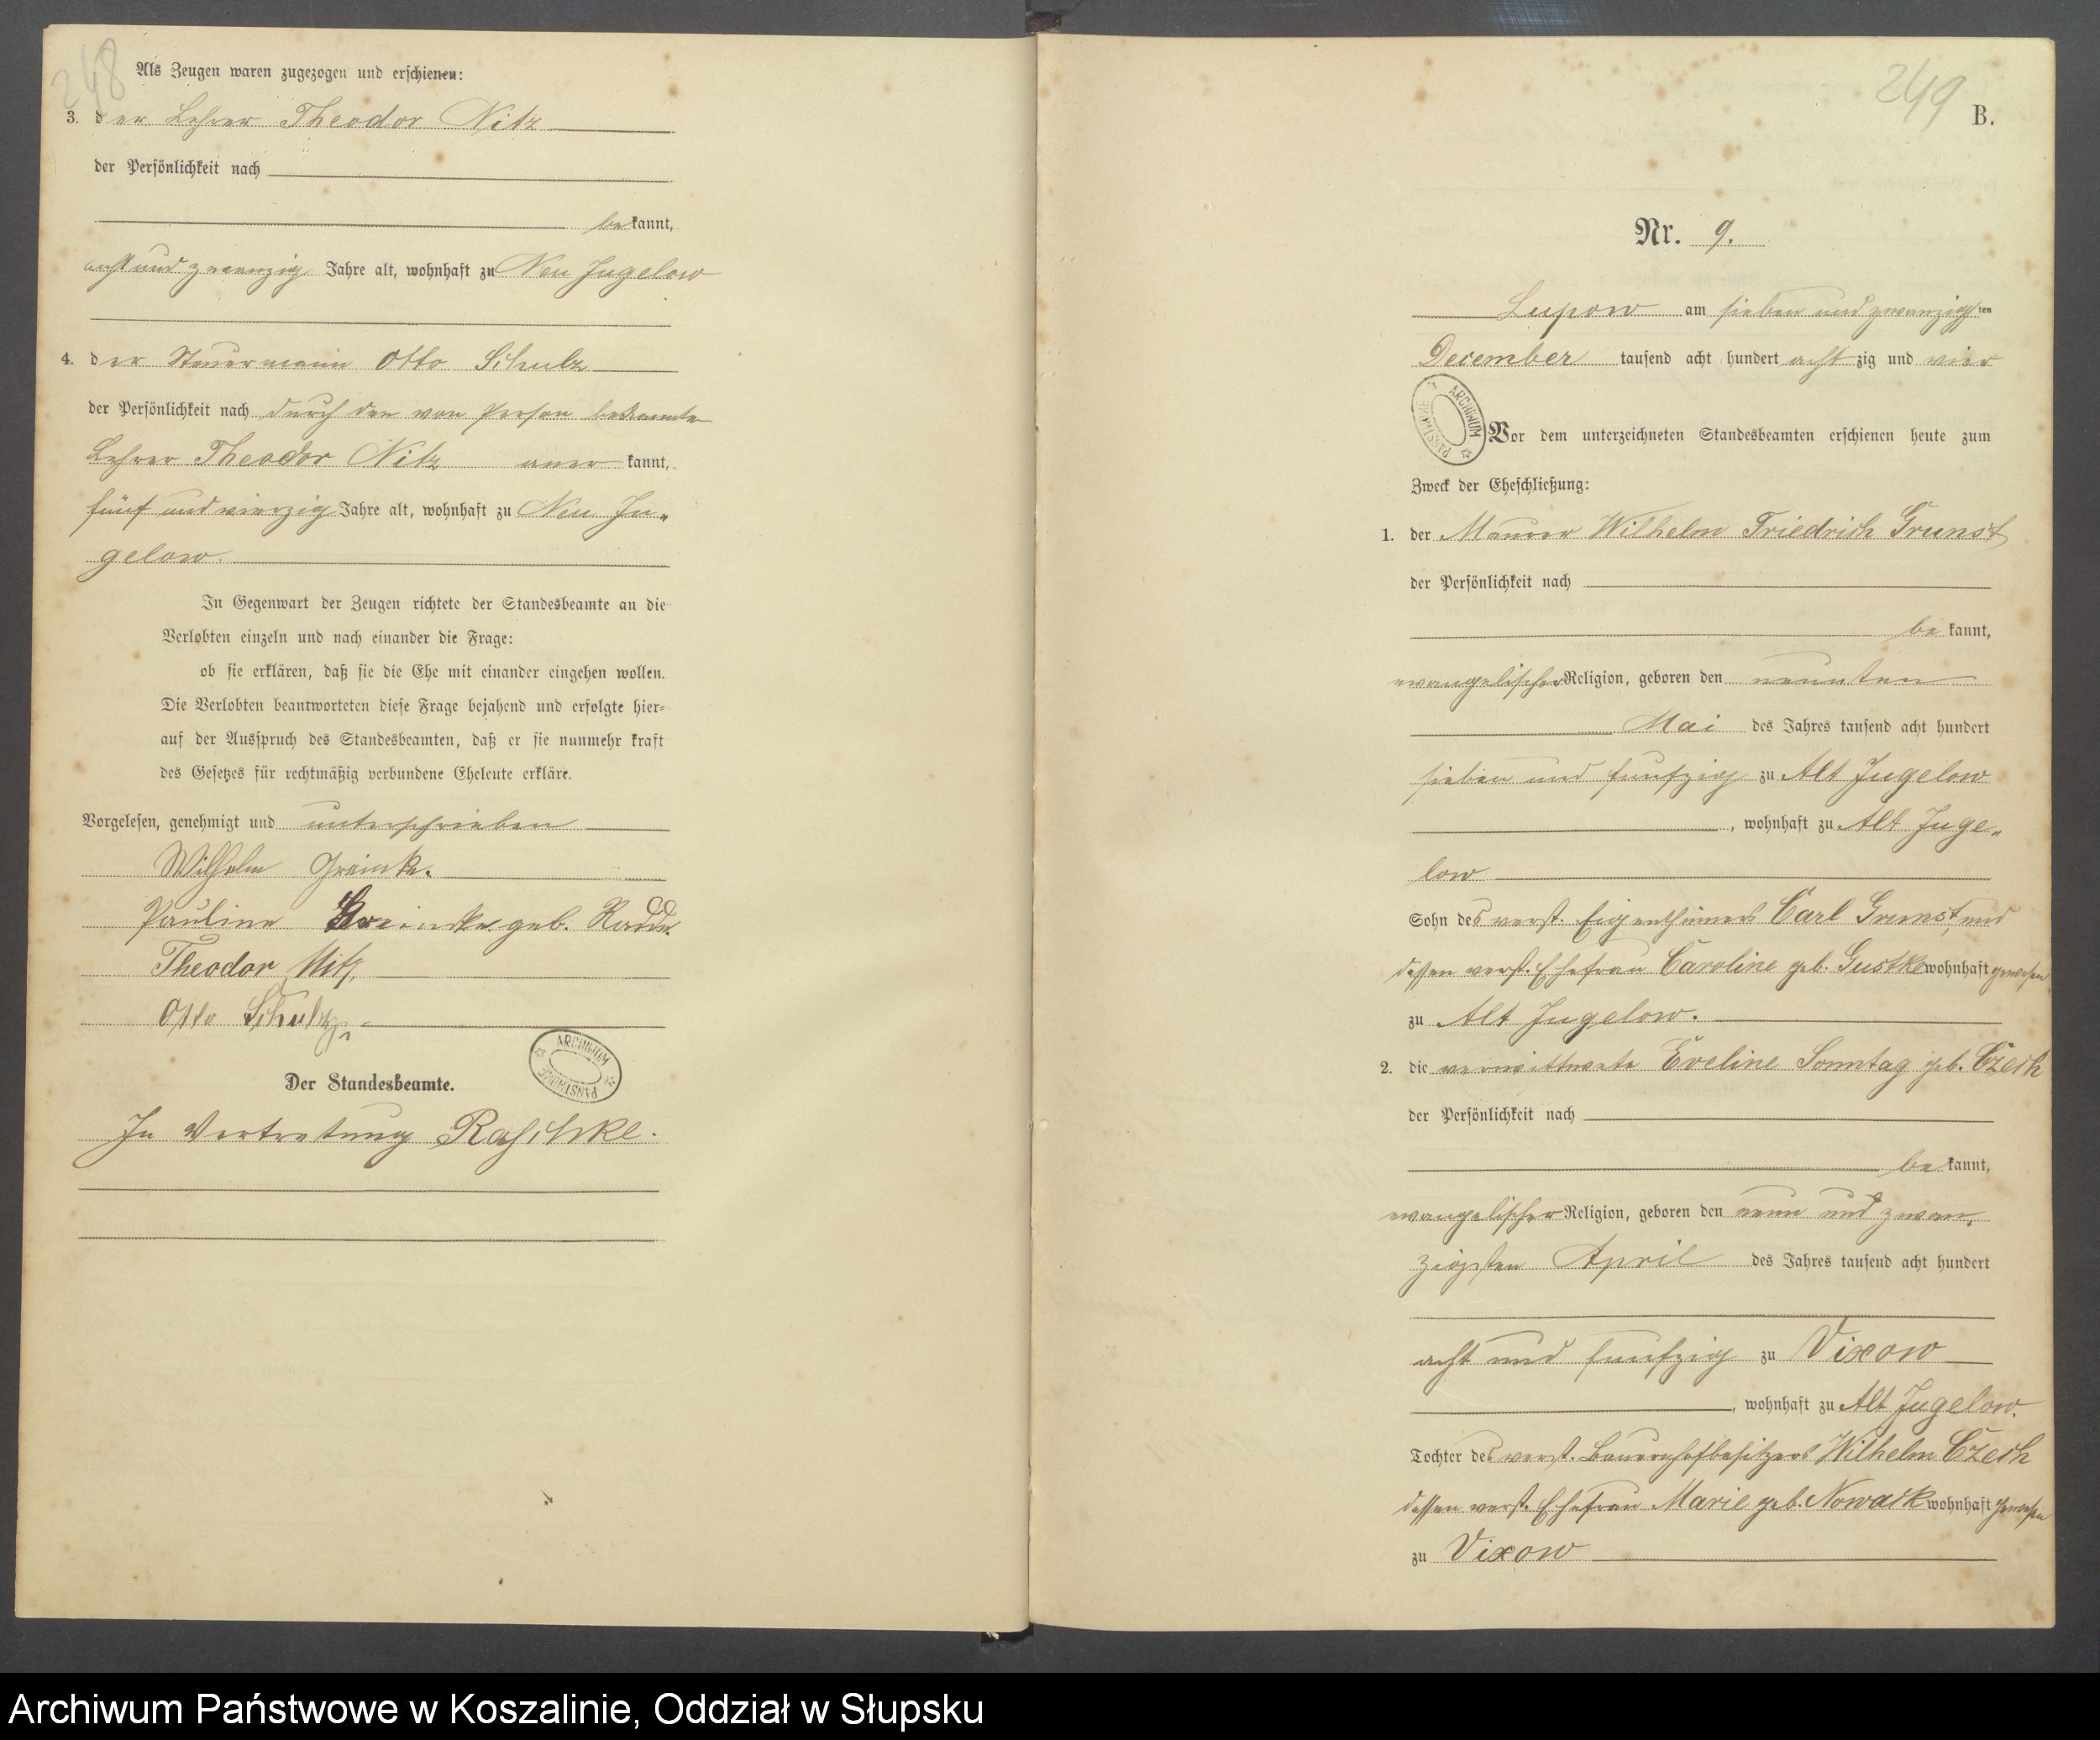 248
Als Zeugen waren zugezogen und erschienen:
3. der Lehrer Theodor Nitz
der Persönlichkeit nach
be kannt,
acht und zwanzig Jahre alt, wohnhaft zu Neu Jugelow
4. der Steuermann Otto Schulz
der Persönlichkeit nach durch den von Person bekannten
Lehrer Theodor Nitz aner kannt,
fünf und vierzig Jahre alt, wohnhaft zu Neu Ju„
gelow.
In Gegenwart der Zeugen richtete der Standesbeamte an die
Verlobten einzeln und nach einander die Frage:
ob sie erklären, daß sie die Ehe mit einander eingehen wollen.
Die Verlobten beantworteten diese Frage bejahend und erfolgte hier-
auf der Ausspruch des Standesbeamten, daß er sie nunmehr kraft
des Gesetzes für rechtmäßig verbundene Eheleute erkläre.
Vorgelesen, genehmigt und unterschrieben
Wilhelm Greinke.
Pauline Greinke geb. Radde.
Theodor Nitz,
Otto Schulz
ARCHIWUM PAŃSTWOWE
Der Standesbeamte.
In Vertretung Raschke.
249
B.
Nr. 9.
Lupow am sieben und zwanzigsten
December tausend acht hundert acht zig und vier
ARCHIWUM PAŃSTWOWE
Vor dem unterzeichneten Standesbeamten erschienen heute zum
Zweck der Eheschließung:
1. der Maurer Wilhelm Friedrich Grunst
der Persönlichkeit nach
be kannt,
evangelischer Religion, geboren den neunten
Mai des Jahres tausend acht hundert
sieben und funfzig zu Alt Jugelow
, wohnhaft zu Alt Juge„
low
Sohn des verst. Eigenthümers Carl Grunst, und
dessen verst. Ehefrau Caroline geb. Gustke wohnhaft gewesen
zu Alt Jugelow.
2. die verwittwete Eveline Sonntag geb. Czech
der Persönlichkeit nach
be kannt,
evangelischer Religion, geboren den neun und zwan„
zigsten April des Jahres tausend acht hundert
acht und funfzig zu Vixow
, wohnhaft zu Alt Jugelow.
Tochter des verst. Bauernhofbesitzers Wilhelm Czech
dessen verst. Ehefrau Marie geb. Nowack wohnhaft gewesen
zu Vixow
Archiwum Państwowe w Koszalinie, Oddział w Słupsku